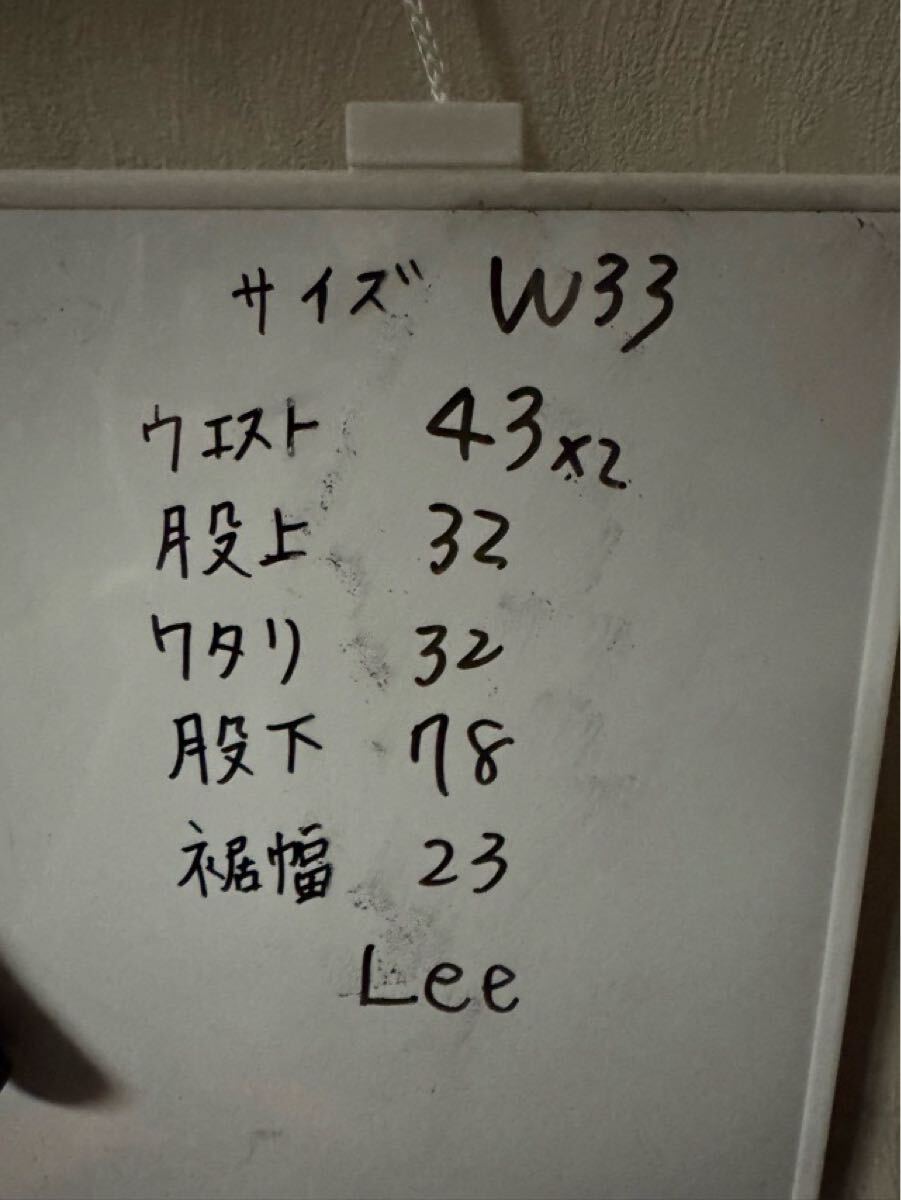 サイズ W33
ウエスト 43×2
股上 32
ワタリ 32
股下 78
裾幅 23
Lee